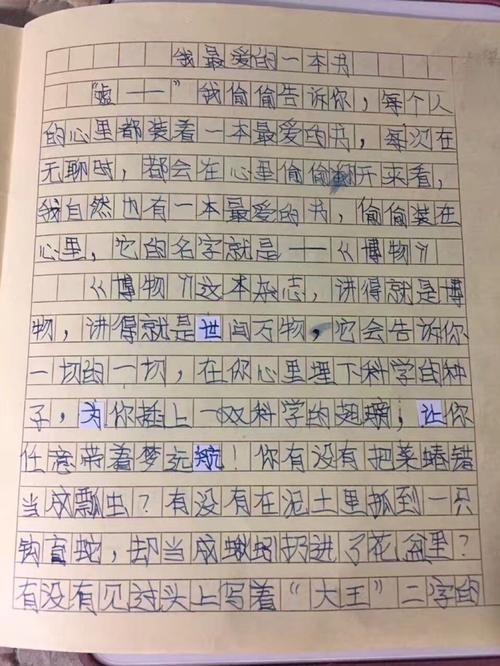 我最爱的一本书
“嘘——”我偷偷告诉你，每个人
的心里都装着一本最爱的书，每次在
无聊时，都会在心里偷偷翻开来看，
我自然也有一本最爱的书，偷偷装在
心里，它的名字就是——《博物》
《博物》这本杂志，讲得就是博
物，讲得就是世间万物，它会告诉你
一切的一切，在你心里埋下科学的种
子，为你插上一双科学的翅膀；让你
任意带着梦远航！你有没有把菜蝽错
当成瓢虫？有没有在泥土里抓到一只
钩盲蛇，却当成蚯蚓扔进了花盆里？
有没有见过头上写着“大王”二字的